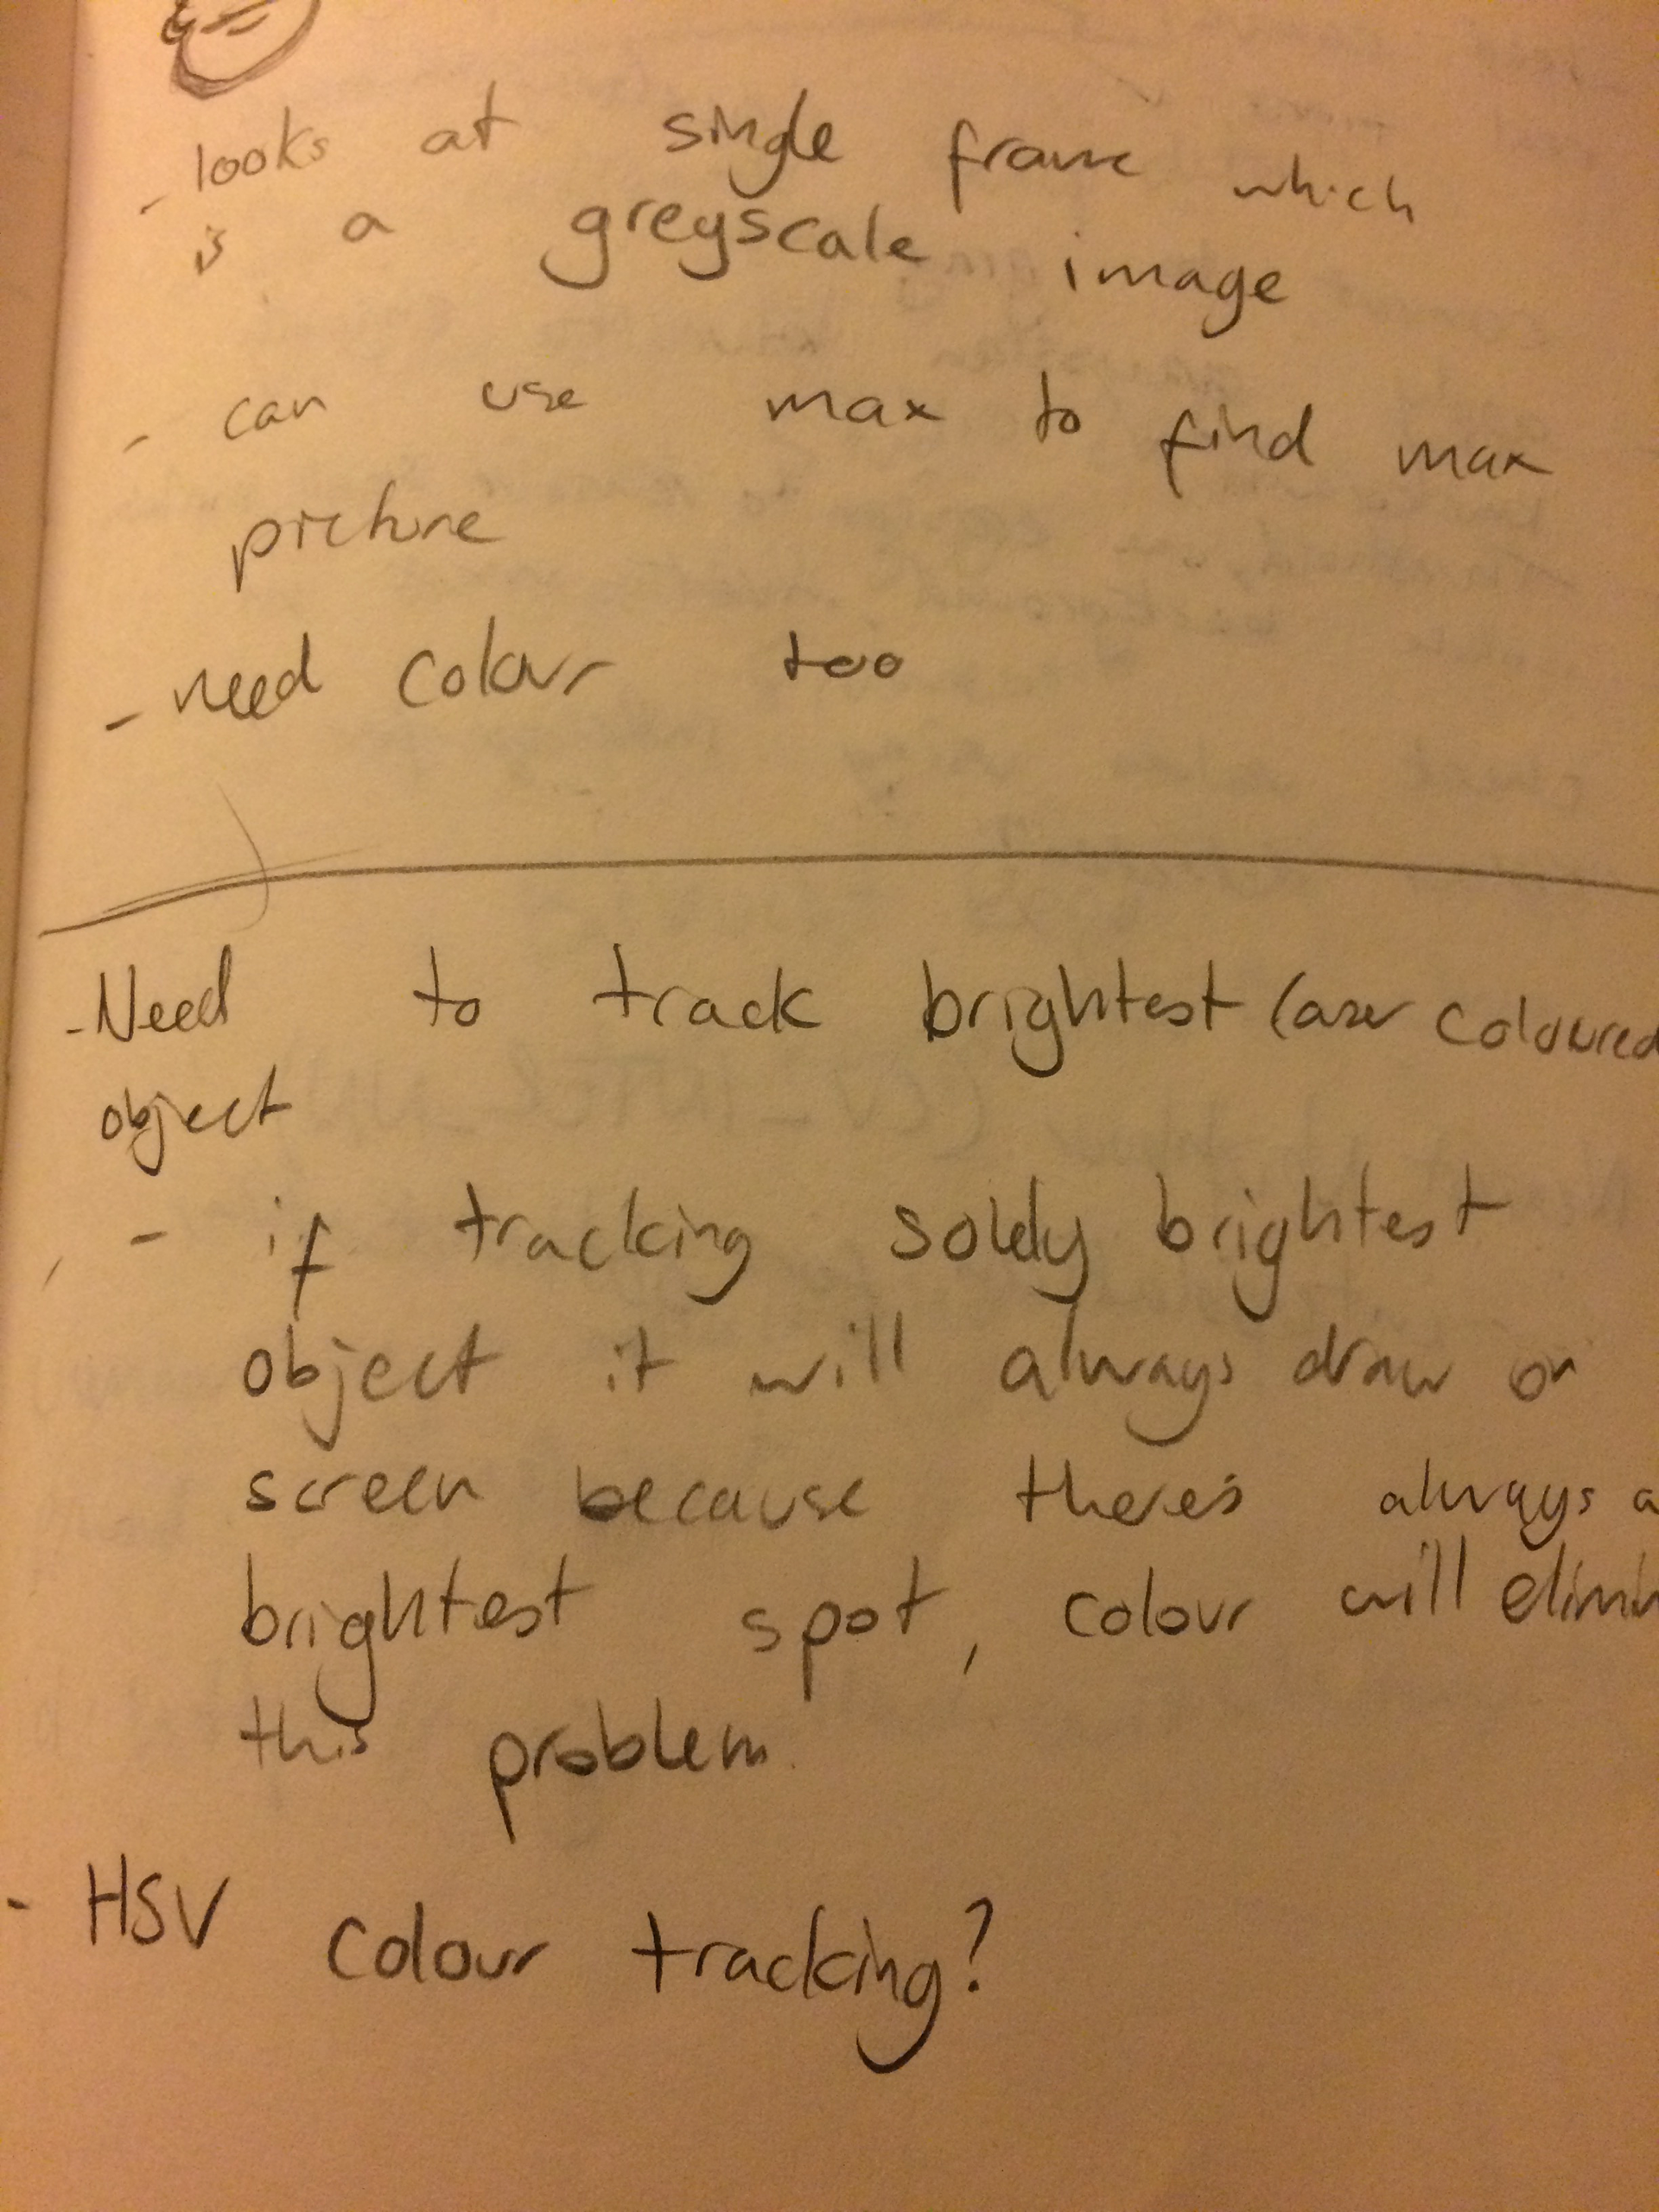 - looks at single frame which
is a greyscale image
- can use max to find max
picture
- need colour too
- Need to track brightest laser coloured
object
- if tracking solely brightest
object it will always draw on
screen because there's always a
brightest spot, colour will elimin
this problem.
- HSV colour tracking?